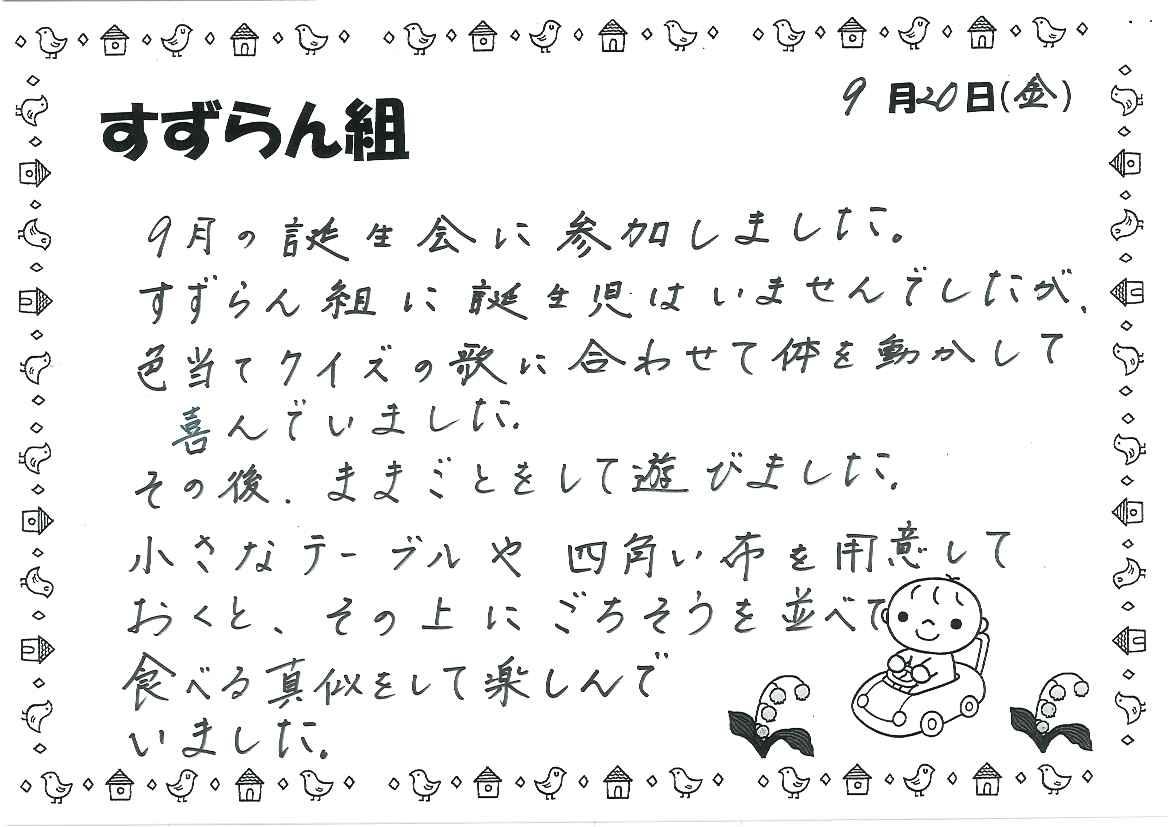 9月20日(金)
すずらん組
9月の誕生会に参加しました。
すずらん組に誕生児はいませんでしたが、
色当てクイズの歌に合わせて体を動かして
喜んでいました。
その後、ままごとをして遊びました。
小さなテーブルや四角い布を用意して
おくと、その上にごちそうを並べて
食べる真似をして楽しんで
いました。